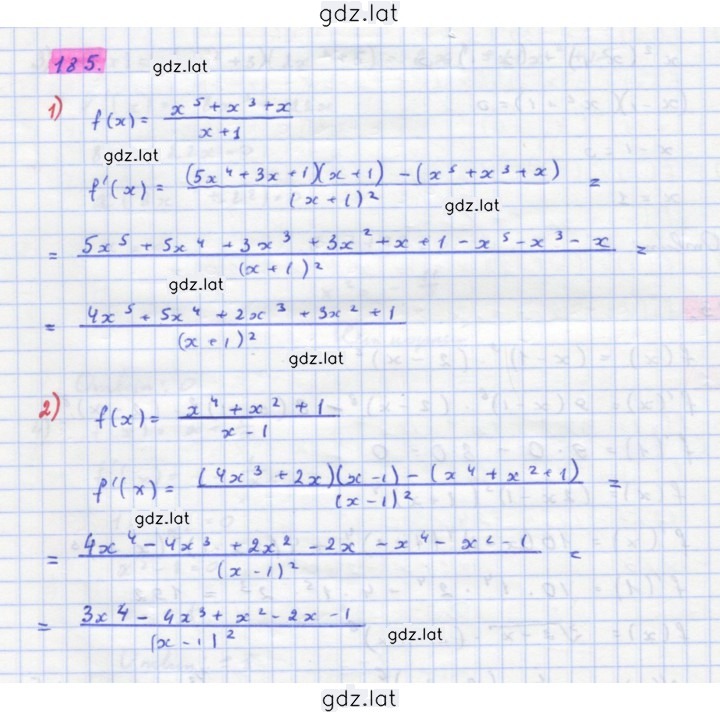 gdz.lat
185.
gdz.lat
1) f(x) = (x⁵ + x³ + x)/(x + 1)
gdz.lat
f'(x) = ((5x⁴ + 3x + 1)(x + 1) - (x⁵ + x³ + x))/(x + 1)² =
gdz.lat
= (5x⁵ + 5x⁴ + 3x³ + 3x² + x + 1 - x⁵ - x³ - x)/(x + 1)² =
gdz.lat
= (4x⁵ + 5x⁴ + 2x³ + 3x² + 1)/(x + 1)²
gdz.lat
2) f(x) = (x⁴ + x² + 1)/(x - 1)
f'(x) = ((4x³ + 2x)(x - 1) - (x⁴ + x² + 1))/(x - 1)² =
gdz.lat
= (4x⁴ - 4x³ + 2x² - 2x - x⁴ - x² - 1)/(x - 1)² =
= (3x⁴ - 4x³ + x² - 2x - 1)/(x - 1)²
gdz.lat
gdz.lat